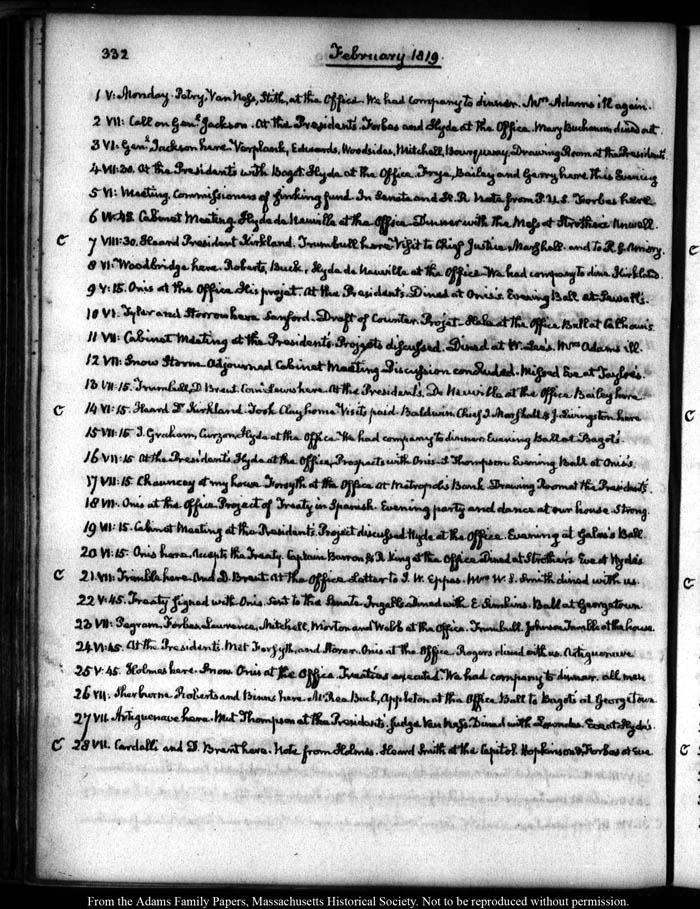 332 February 1819.
1 V: Monday. Petry, Van Ness, Stith, at the Office. We had company to dinner. Mrs Adams ill again.
2 VII: Call on Genl Jackson. At the Presidents. Forbes and Hyde at the Office. Mary Buchanan dined out
3 VI. Genl Jackson here. Verplank, Edwards, Woodsides, Mitchell, Drawing Room at the Presidents.
4 VII:30. At the Presidents with Bagot. Hyde at the Office. Frye, Bailey and Gerry here this Evening
5 VI: Meeting Commissioners of sinking fund. In Senate and H. R. Note from P. U. S. Forbes here
6 VI:45. Cabinet Meeting. Hyde de Neuville at the Office. Dinner with the Mess at Strother's. Unwell.
C 7 VIII:30. Heard President Kirkland. Trumbull here. Visit to Chief Justice Marshall and to R. G.
8 VI. Woodbridge here. Roberts, Buck, Hyde de Neuville at the Office. We had company to dine. Kirkland
9 V:15. Onis at the Office. His projet. At the President's. Dined at Onis's. Evening Ball at
10 VI. Tyler and Storrow here. Sanford. Draft of Counter Projet. at the Office. Ball at Calhoun's
11 VII: Cabinet Meeting at the President's. Projets discussed. Dined at W. Lee's. Mrs Adams ill.
12 VII: Snow Storm. Adjourned Cabinet Meeting. Discussion concluded. Eve at Tayloe's.
13 VII:15. Trumbull, D. Brent. here. At the President's. De Neuville at the Office. Bailey here
C 14 VI:15. Heard Dr Kirkland. Took Clay home. Visits paid. Baldwin. Chief J. Marshall & J. Livingston here
15 VII:15 J. Graham, Curzon, Hyde at the Office. We had company to dinner. Evening Ball at Bagot's.
16 VI:15 At the President's. Hyde at the Office, Prospects with Onis. S. Thompson. Evening Ball at Onis's.
17 VII:15 Chauncey at my house. Forsyth at the Office. At Metropolis Bank. Drawing Room at the President's.
18 VII. Onis at the Office. Project of Treaty in Spanish. Evening party and dance at our house. Strong
19 VII:15. Cabinet Meeting at the Presidents. Project discussed. Hyde at the Office. Evening at Gales's Ball.
20 VI:15. Onis here. Accepts the Treaty. Captain Barron & R. King at the Office. Dined at Strother's. Eve at Hyde's
C 21 VII: Trimble here. And D. Brent. At the Office. Letter to J. W. Eppes. Mrs W. S. Smith dined with us.
22 V:45. Treaty signed with Onis. Sent to the Senate. Ingalls dined with E. Simkins. Ball at Georgetown
23 VII: Pegram. Forbes, Lawrence, Mitchell, Morton and Webb at the Office. Trumbull. Johnson Trimble at the house.
24 VI:45. At the Presidents. Met Forsyth, and Storer. Onis at the Office. Rogers dined with us. Artiguenave
25 V:45. Holmes here. Snow. Onis at the Office. Treaties executed. We had company to dinner. All men
26 VII: Sherburne Roberts and Binns here. McRea Buck, Appleton at the Office. Ball to Bagot's at Georgetown
27 VII. Artiguenave here. Met Thompson at the President's. Judge Van Ness. Dined with Lowndes. Eve at Hyde's.
C 28 VII. Cardelli and D. Brent here. Note from Holmes. Heard Smith at the Capitol. Hopkinson & Forbes at Eve
C
C
C
C
From the Adams Family Papers, Massachusetts Historical Society. Not to be reproduced without permission.